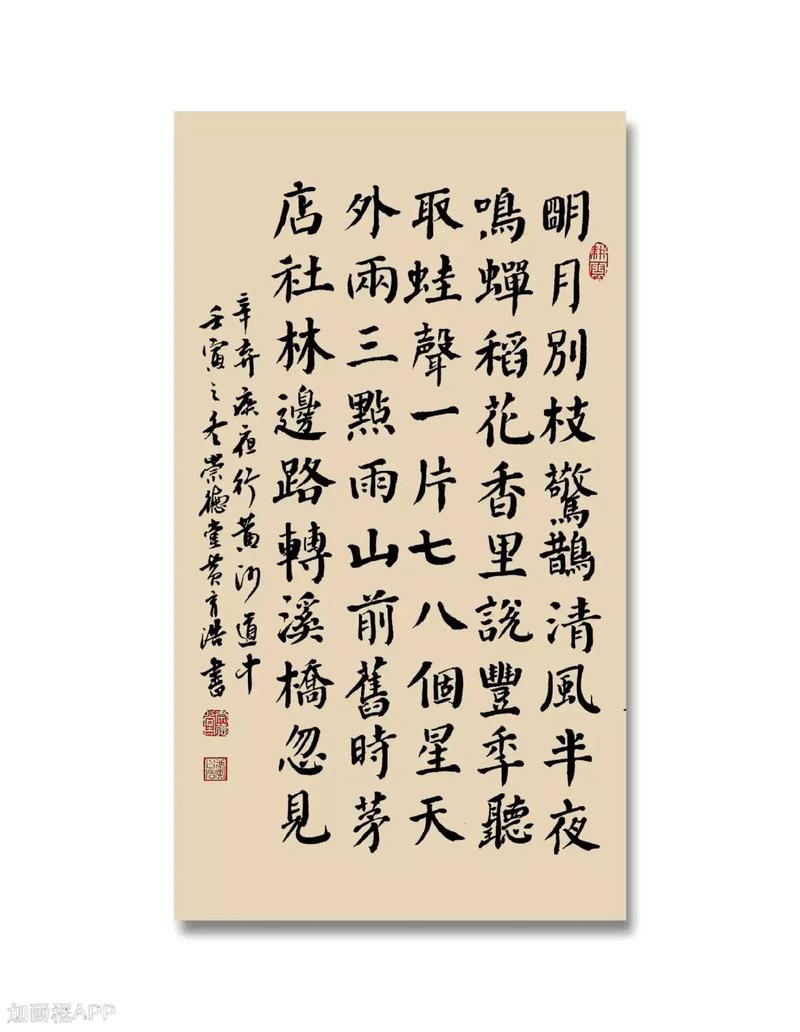 明月別枝驚鵲清風半夜
鳴蟬稻花香里說豐年聽
取蛙聲一片七八個星天
外兩三點雨山前舊時茅
店社林邊路轉溪橋忽見
辛弃疾夜行黃沙道中
壬寅之冬崇德堂黃育浩書
耕雲
如画框APP